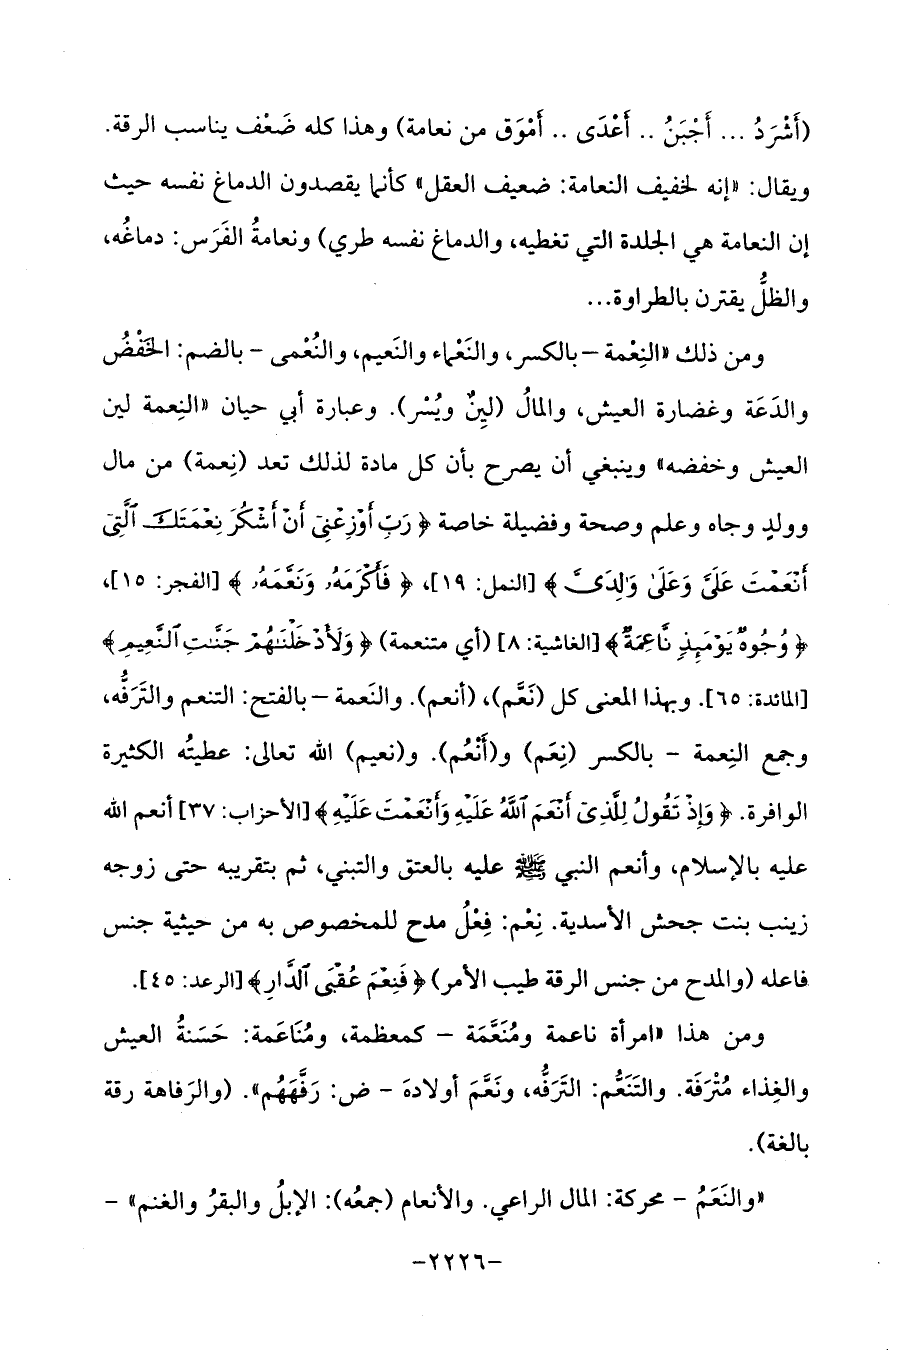 (أَشْرَدُ ... أَجْبَنُ .. أَعْدَى .. أَمْوَق من نعامة) وهذا كله ضَعْف يناسب الرقة.
ويقال: «إنه لخفيف النعامة: ضعيف العقل» كأنما يقصدون الدماغ نفسه حيث
إن النعامة هي الجلدة التي تغطيه، والدماغ نفسه طري) ونعامةُ الفَرَس: دماغُه،
والظلُّ يقترن بالطراوة...
ومن ذلك «النِعْمة – بالكسر، والنَعْماء والنَعيم، والنُعْمى – بالضم: الخَفْضُ
والدَعَة وغضارة العيش، والمالُ (لينٌ ويُسْر). وعبارة أبي حيان «النِعمة لين
العيش وخفضه» وينبغي أن يصرح بأن كل مادة لذلك تعد (نِعمة) من مال
وولدٍ وجاه وعلم وصحة وفضيلة خاصة ﴿ رَبِّ أَوْزِعْنِىٓ أَنْ أَشْكُرَ نِعْمَتَكَ ٱلَّتِىٓ
أَنْعَمْتَ عَلَىَّ وَعَلَىٰ وَٰلِدَىَّ ﴾ [النمل: ١٩]، ﴿ فَأَكْرَمَهُۥ وَنَعَّمَهُۥ ﴾ [الفجر: ١٥]،
﴿ وُجُوهٌ يَوْمَئِذٍ نَّاعِمَةٌ﴾ [الغاشية: ٨] (أي متنعمة) ﴿ وَلَأَدْخَلْنَٰهُمْ جَنَّٰتِ ٱلنَّعِيمِ﴾
[المائدة: ٦٥]. وبهذا المعنى كل (نَعَّم)، (أنعم). والنَعمة – بالفتح: التنعم والتَرَفُّه،
وجمع النِعمة – بالكسر (نِعَم) و(أَنْعُم). و(نعيم) الله تعالى: عطيتُه الكثيرة
الوافرة. ﴿ وَإِذْ تَقُولُ لِلَّذِىٓ أَنْعَمَ ٱللَّهُ عَلَيْهِ وَأَنْعَمْتَ عَلَيْهِ﴾ [الأحزاب: ٣٧] أنعم الله
عليه بالإسلام، وأنعم النبي ﷺ عليه بالعتق والتبني، ثم بتقريبه حتى زوجه
زينب بنت جحش الأسدية. نِعْم: فِعْلُ مدح للمخصوص به من حيثية جنس
فاعله (والمدح من جنس الرقة طيب الأمر) ﴿ فَنِعْمَ عُقْبَى ٱلدَّارِ﴾ [الرعد: ٤٥].
ومن هذا «امرأة ناعمة ومُنَعَّمَة – كمعظمة، ومُنَاعَمة: حَسَنةُ العيش
والغِذاء مُتْرَفَة. والتَنَعُّم: التَرَفُّه، ونَعَّمَ أولادهَ – ض: رَفَّهَهُم». (والرَفاهة رقة
بالغة).
«والنَعَمُ – محركة: المال الراعي. والأنعام (جمعُه): الإبلُ والبقرُ والغنم» –
-٢٢٢٦-